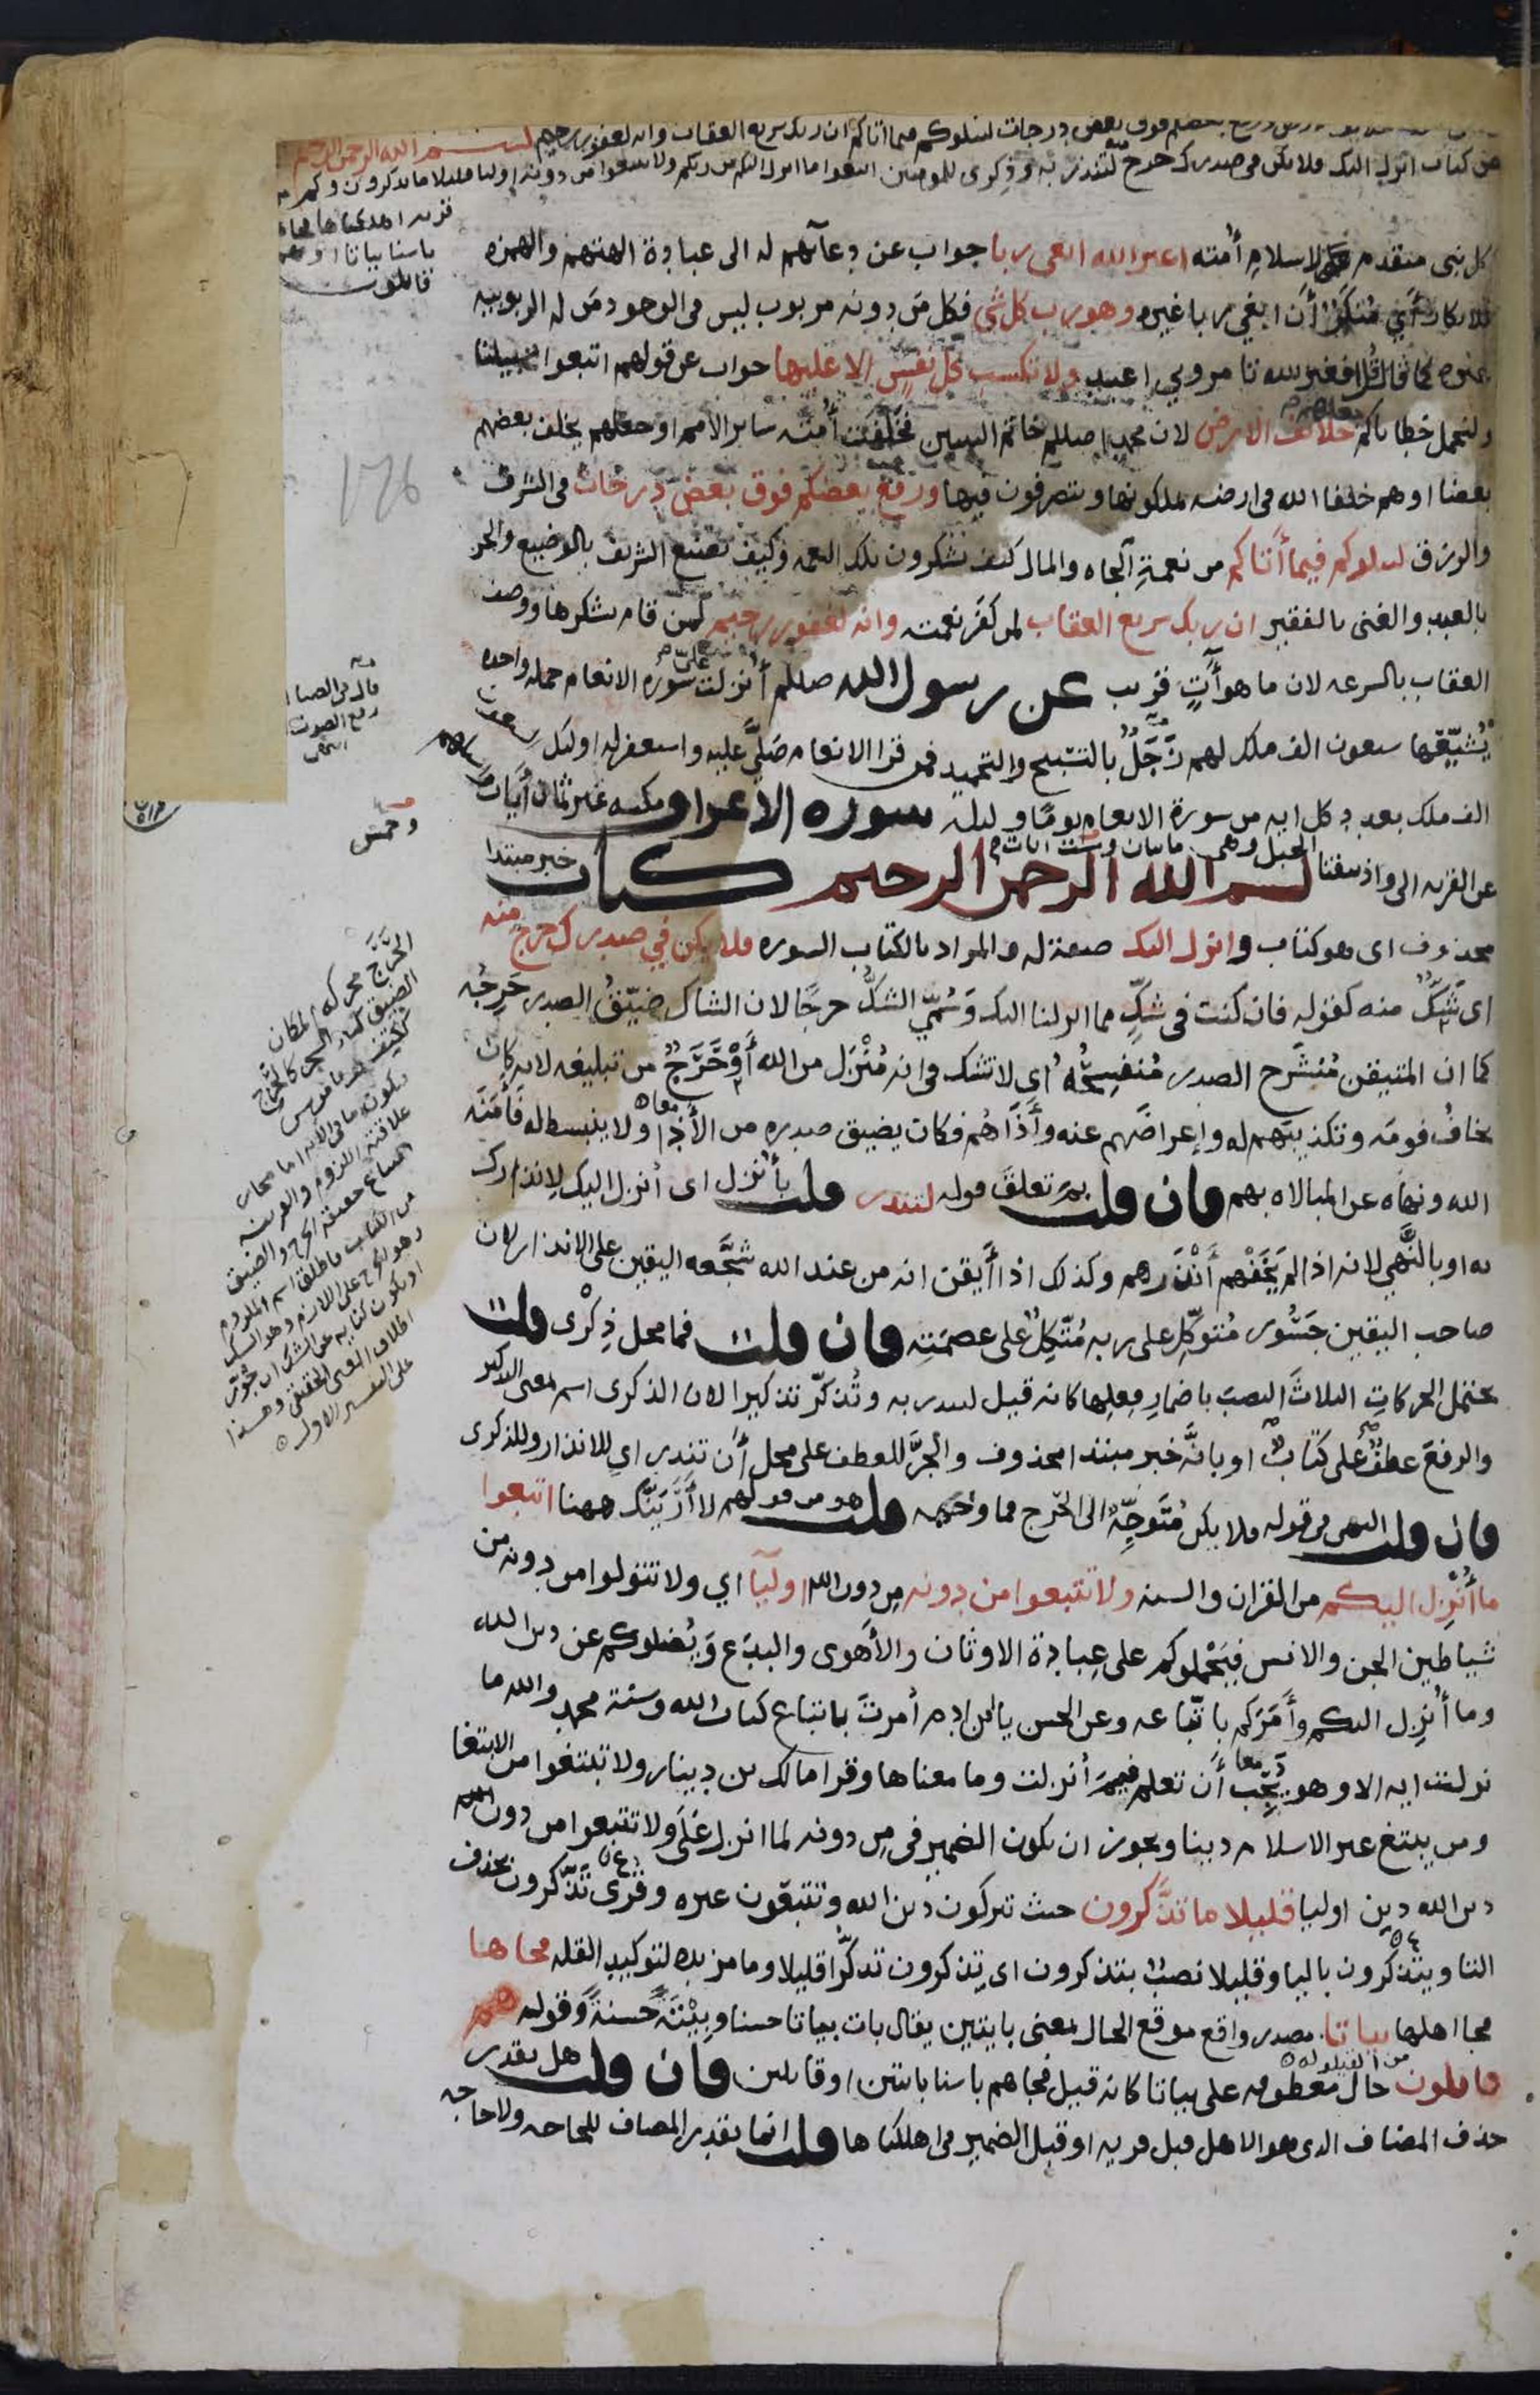 فوق بعض درجات ليبلوكم فيما اتاكم ان ربك سريع العقاب وانه لغفور رحيم بسم الله الرحمن الرحيم
كتاب انزل اليك فلا يكن في صدرك حرج منه لتنذر به وذكرى للمومنين اتبعوا ما انزل اليكم من ربكم ولا تتبعوا من دونه اوليا قليلا ما تذكرون وكم من
قريه اهلكناها فجاها
باسنا بياتا او هم
قائلون
كل نبي متقدم الاسلام أمته اغير الله ابغي ربا جواب عن دعآئهم له الى عبادة الهتهم والهمزه
للانكار أي منكر أن ابغي ربا غيره وهو رب كل شي فكل مَن دونه مربوب ليس في الوجود مَن له الربوبيه
غيره كما قال قُل افغير الله تامروني اعبد ولا تكسب كل نفس الا عليها جواب عن قولهم اتبعوا سبيلنا
ولنحمل خطاياكم جعلكم خلائف الارض لان محمدا صللم خاتم النبيين فخَلَفَت أمته ساير الأمم او جعلهم يخلف بعضهم
بعضا او هم خلفا الله في ارضه يملكونها ويتصرفون فيها ورفع بعضكم فوق بعض درجات في الشرف
والرزق ليبلوكم فيما أتاكم من نعمةِ الجاه والمال كيف تشكرون تلك النعمه وكيف يصنع الشريف بالوضيع والحر
بالعبد والغنى بالفقير ان ربك سريع العقاب لمن كفر نعمته وانه لغفور رحيم لمن قام بشكرها ووصف
العقاب بالسرعه لان ما هو أتٍ قريب عن رسول الله صللم أنزلت عليّ سورة الانعام جمله واحده
يُشيّعُها سبعون الف ملك لهم زَجَلٌ بالتسبيح والتحميد فمن قرا الانعام صَلَّى عليه واستغفر له اوليك سبعون
الف ملك بعدد كل ايه من سورة الانعام يومًا وليلة سوره الاعراف مكيه غير ثمان أيات واسالهم
عن القريه الى واذ نتقنا الجبل وهي مايتان وست ايات بسم الله الرحمن الرحيم كتاب خبر مبتدا
محذوف اى هو كتاب وانزل اليك صفة له والمراد بالكتاب السوره فلا يكن في صدرك حرج منه
اى شَكٌّ منه كقوله فان كنت فى شكٍّ مما انزلنا اليك وَسُمِّيَ الشكُّ حرجًا لان الشاك ضيّقُ الصدر حَرِجُه
كما ان المتيقن مُنشَرح الصدر مُنفسِحُه اي لا تشك في انه مُنْزَل من الله أَوْحَرَجٌ من تبليغه لانه كان
يخافُ قومَه وتكذيبَهم له وإعراضَهم عنه وأذَاهُم فكان يضيق صدره من الأذا ولا ينبسط له فأمّنَه
الله ونهاه عن المبالاه بهم فان قلت بِمَ تعلقَ قوله لتنذر قلت بأنزل اى أنزل اليك لإنذارك
به او بالنَّهي لانه اذا لم يَخَفْهم أَنْذرهم وكذلك اذا أَيقن انه من عند الله شجَّعه اليقين على الانذار لان
صاحب اليقين جَسُور مُتوكِّل على ربه مُتَّكِلٌ على عصمَتِه فان قلت فما محل ذِكْرى قلت
يحتمل الحركاتِ الثلاثَ النصبَ باضمار فِعلِها كانه قيل لتنذر به وتُذكِّر تذكيرا لان الذكرى اسم بمعنى التذكير
والرفعَ عطفٌ على كتابٌ او بانَّه خبر مبتدا محذوف والجرَّ للعطف على محل أن تنذر اي للانذار وللذكرى
فان قلت النهي في قوله فلا يكن مُتَوجِّهٌ الى الحرج فما وجهه قلت هو من قولهم لا أَرَيَنَّك ههنا اتبعوا
ما أُنزل اليكم من القران والسنه ولا تتبعوا من دونه من دون الله اوليآ اي ولا تتولوا من دونه من
شياطين الجن والانس فيَحْملوكم على عِبادة الاوثان والأهوى والبِدَع وَيُضلوكم عن دين الله
وما أُنزل اليكم وأَمَرَكم باتّباعه وعن الحسن يا ابن ادم أُمرتَ باتباع كتاب الله وسنة محمد والله ما
نزلت ايه الا وهو يُحِبّ أن تعلم فيمَ أنزلت وما معناها وقرا مالك بن دينار ولا تبتغوا من الابتغا
ومن يبتغ غير الاسلام دينا ويجوز ان يكون الضمير في من دونه لما انزل عَلَى ولا تتبعوا من دون الله
دين الله دين اوليا قليلا ما تذَّكرون حيث تتركون دين الله وتتبعون غيره وقرى تذَّكرون بحذف
التا ويتذكرون باليا وقليلا نصبٌ بتذكرون اى تذكرون تذكّرا قليلا وما مزيده لتوكيد القله فجاها
فجا اهلها بياتا مصدر واقع موقع الحال بمعنى بايتين يقال بات بياتا حسنا وبِيْتَةً حسنةً وقوله هم
قايلون من القيلوله حال معطوفه على بياتا كانه قيل فجاهم باسنا بايتين او قايلين فان قلت هل يقدر
حذف المضاف الذي هو الاهل قبل قريه او قبل الضمير في اهلكناها قلت انما يقدر المضاف للحاجه ولا حاجه
١٢٦
قال في الصحاح
رفع الصوت
انتهى
وخمس
الحَرَج محركة المكان
الضيق
علاقته اللزوم والقرينه
من الكتاب فاطلق اسم الملزوم
وهو الحرج على اللازم وهو الشك
او يكون كنايه عن الشك ان جوّز
اطلاق المعنى الحقيقي وهذا
على التفسير الاول